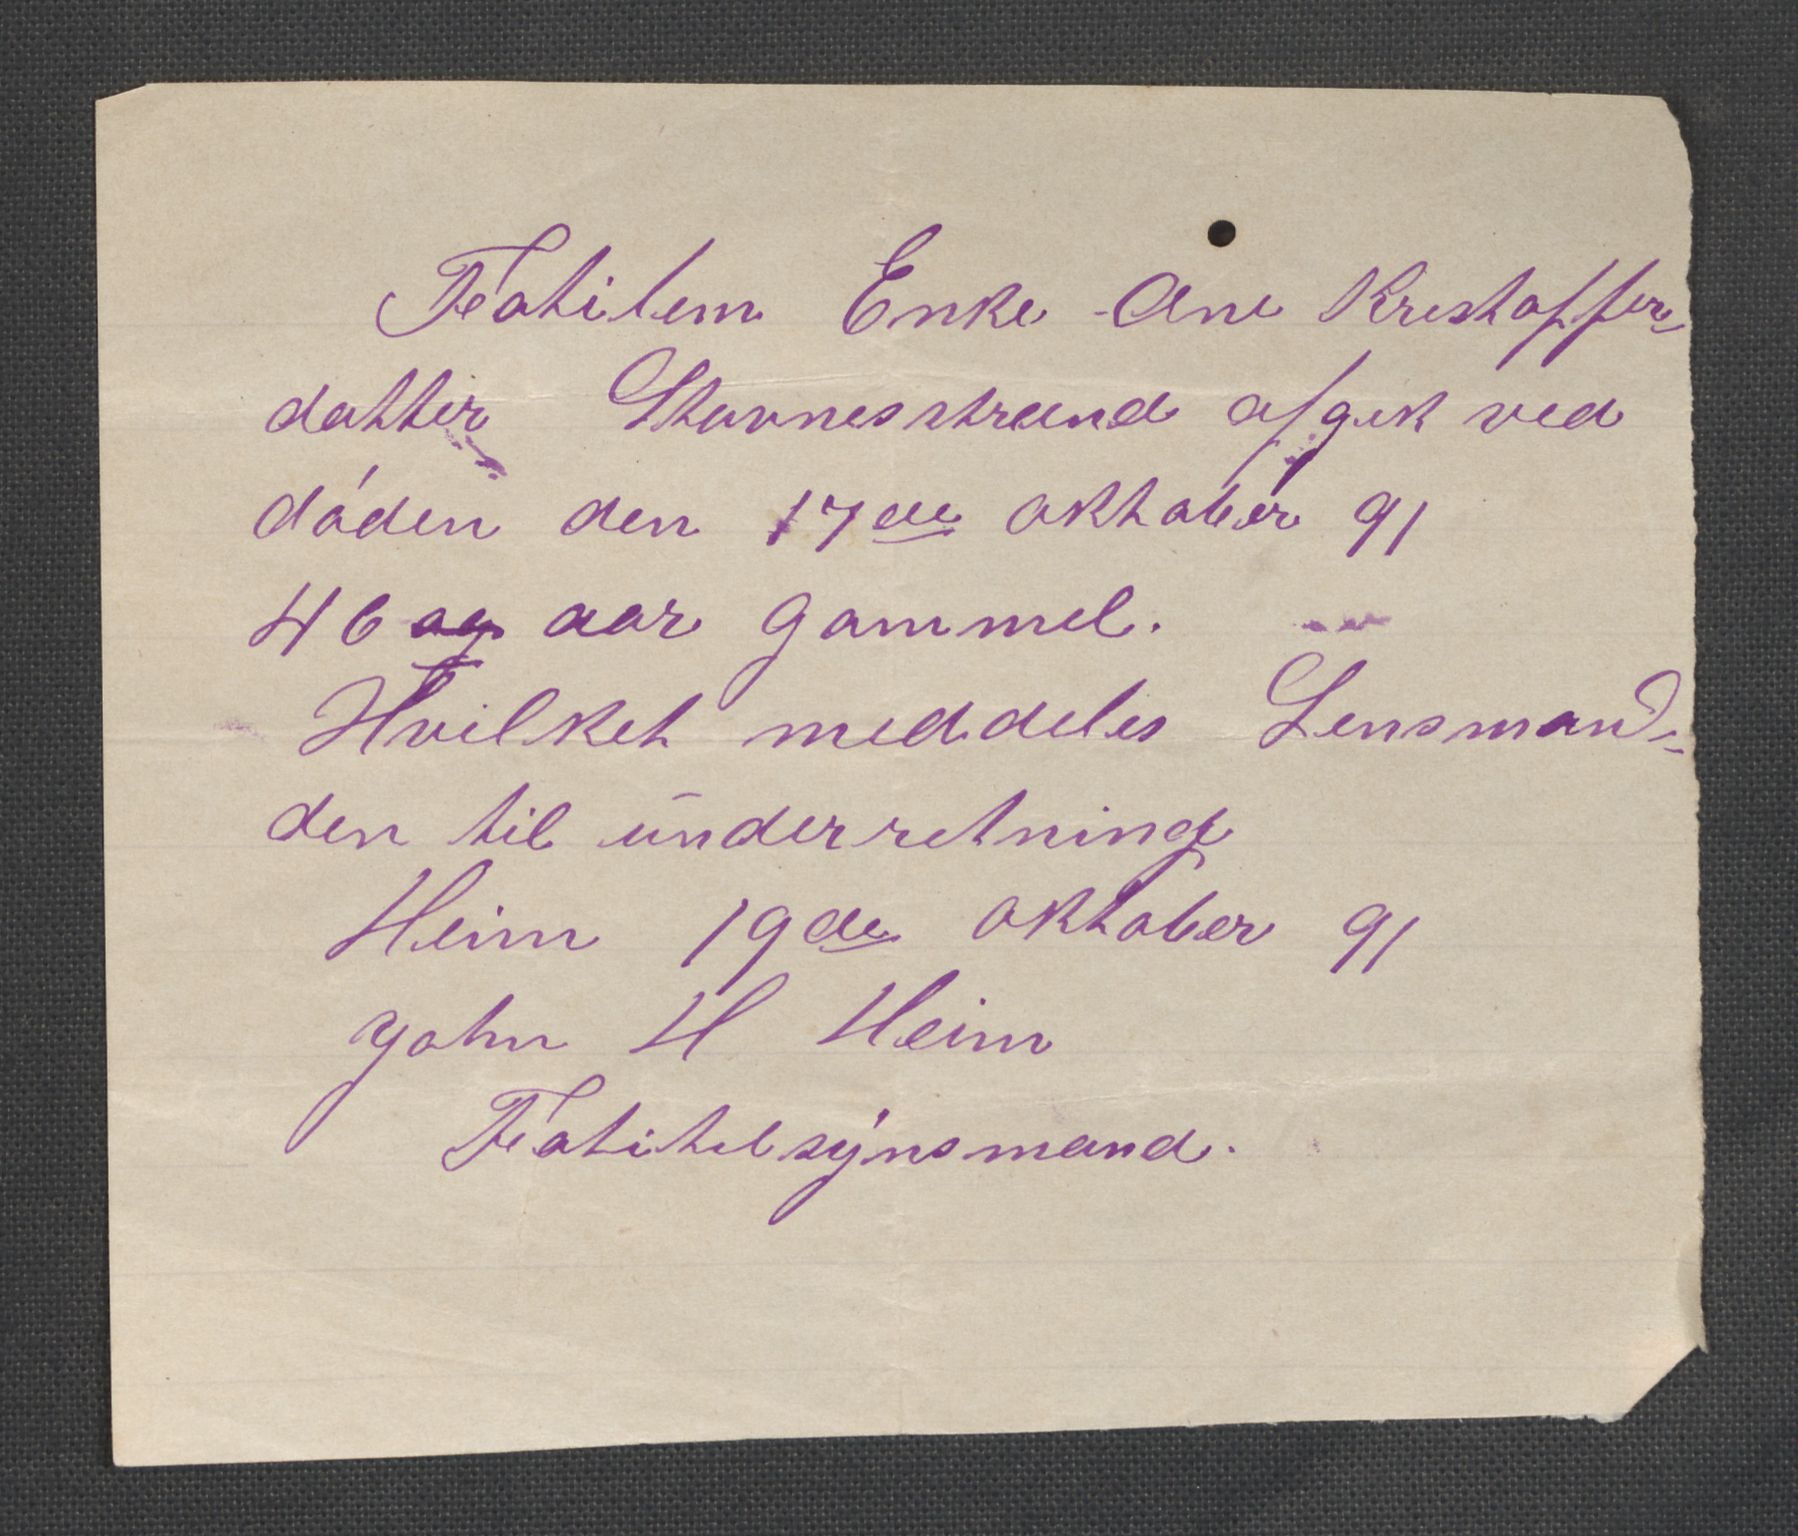 Fatilem Enke Ane Kristoffer-
datter Stavnesstrand afgik ved
döden den 17de oktober 91
46 og aar gammel.
Hvilket meddeles Lensman-
den til ūnderretning
Heim 19de oktober 91
John H Heim
Fatitilsynsmand.